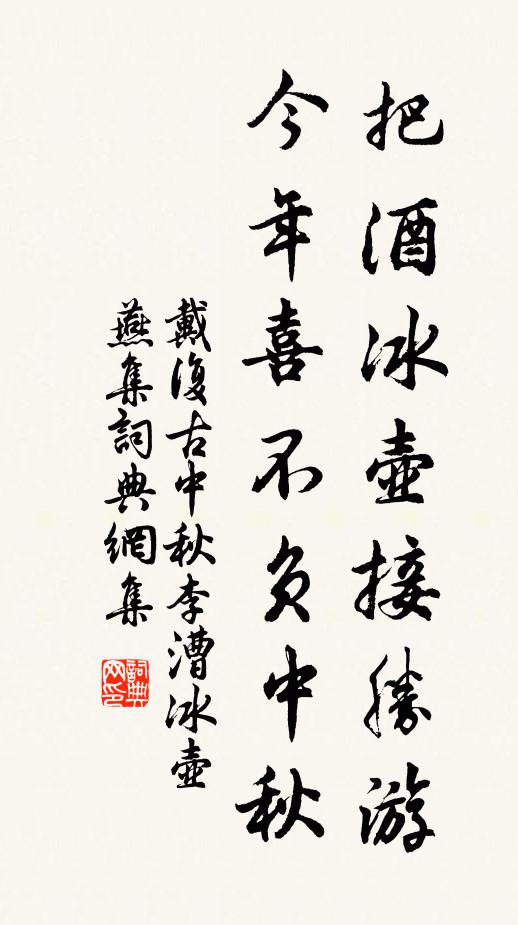 把酒冰壺接勝游
今年喜不負中秋
戴復古中秋李漕冰壺
燕集詞典網集
詞典網印